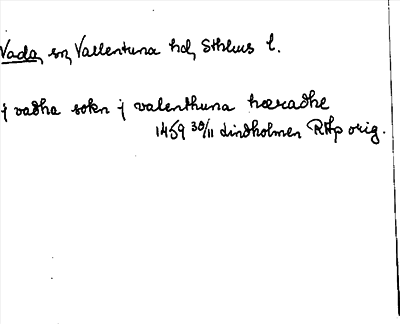 Vada, sn, Vallentuna hd, Sthlms l.
j vadha sokn j valenthuna hæradhe
1459 30/11 Lindholmen RAp orig.